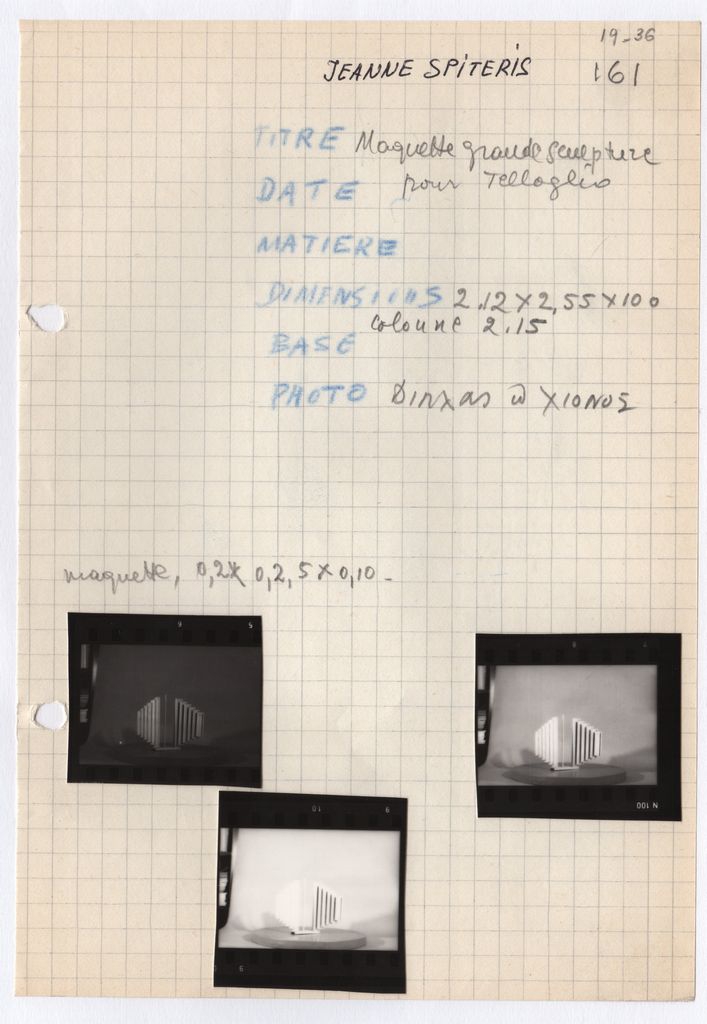 19-36
JEANNE SPITERIS 161
TITRE Maquette grande sculpture
DATE pour Telloglio
MATIERE
DIMENSIONS 2.12 X 2,55 X 100
colonne 2.15
BASE
PHOTO ΧΙΟΝΟΣ
maquette, 0,2 X 0,2,5 X 0,10 -
6 5
N 001
10 9